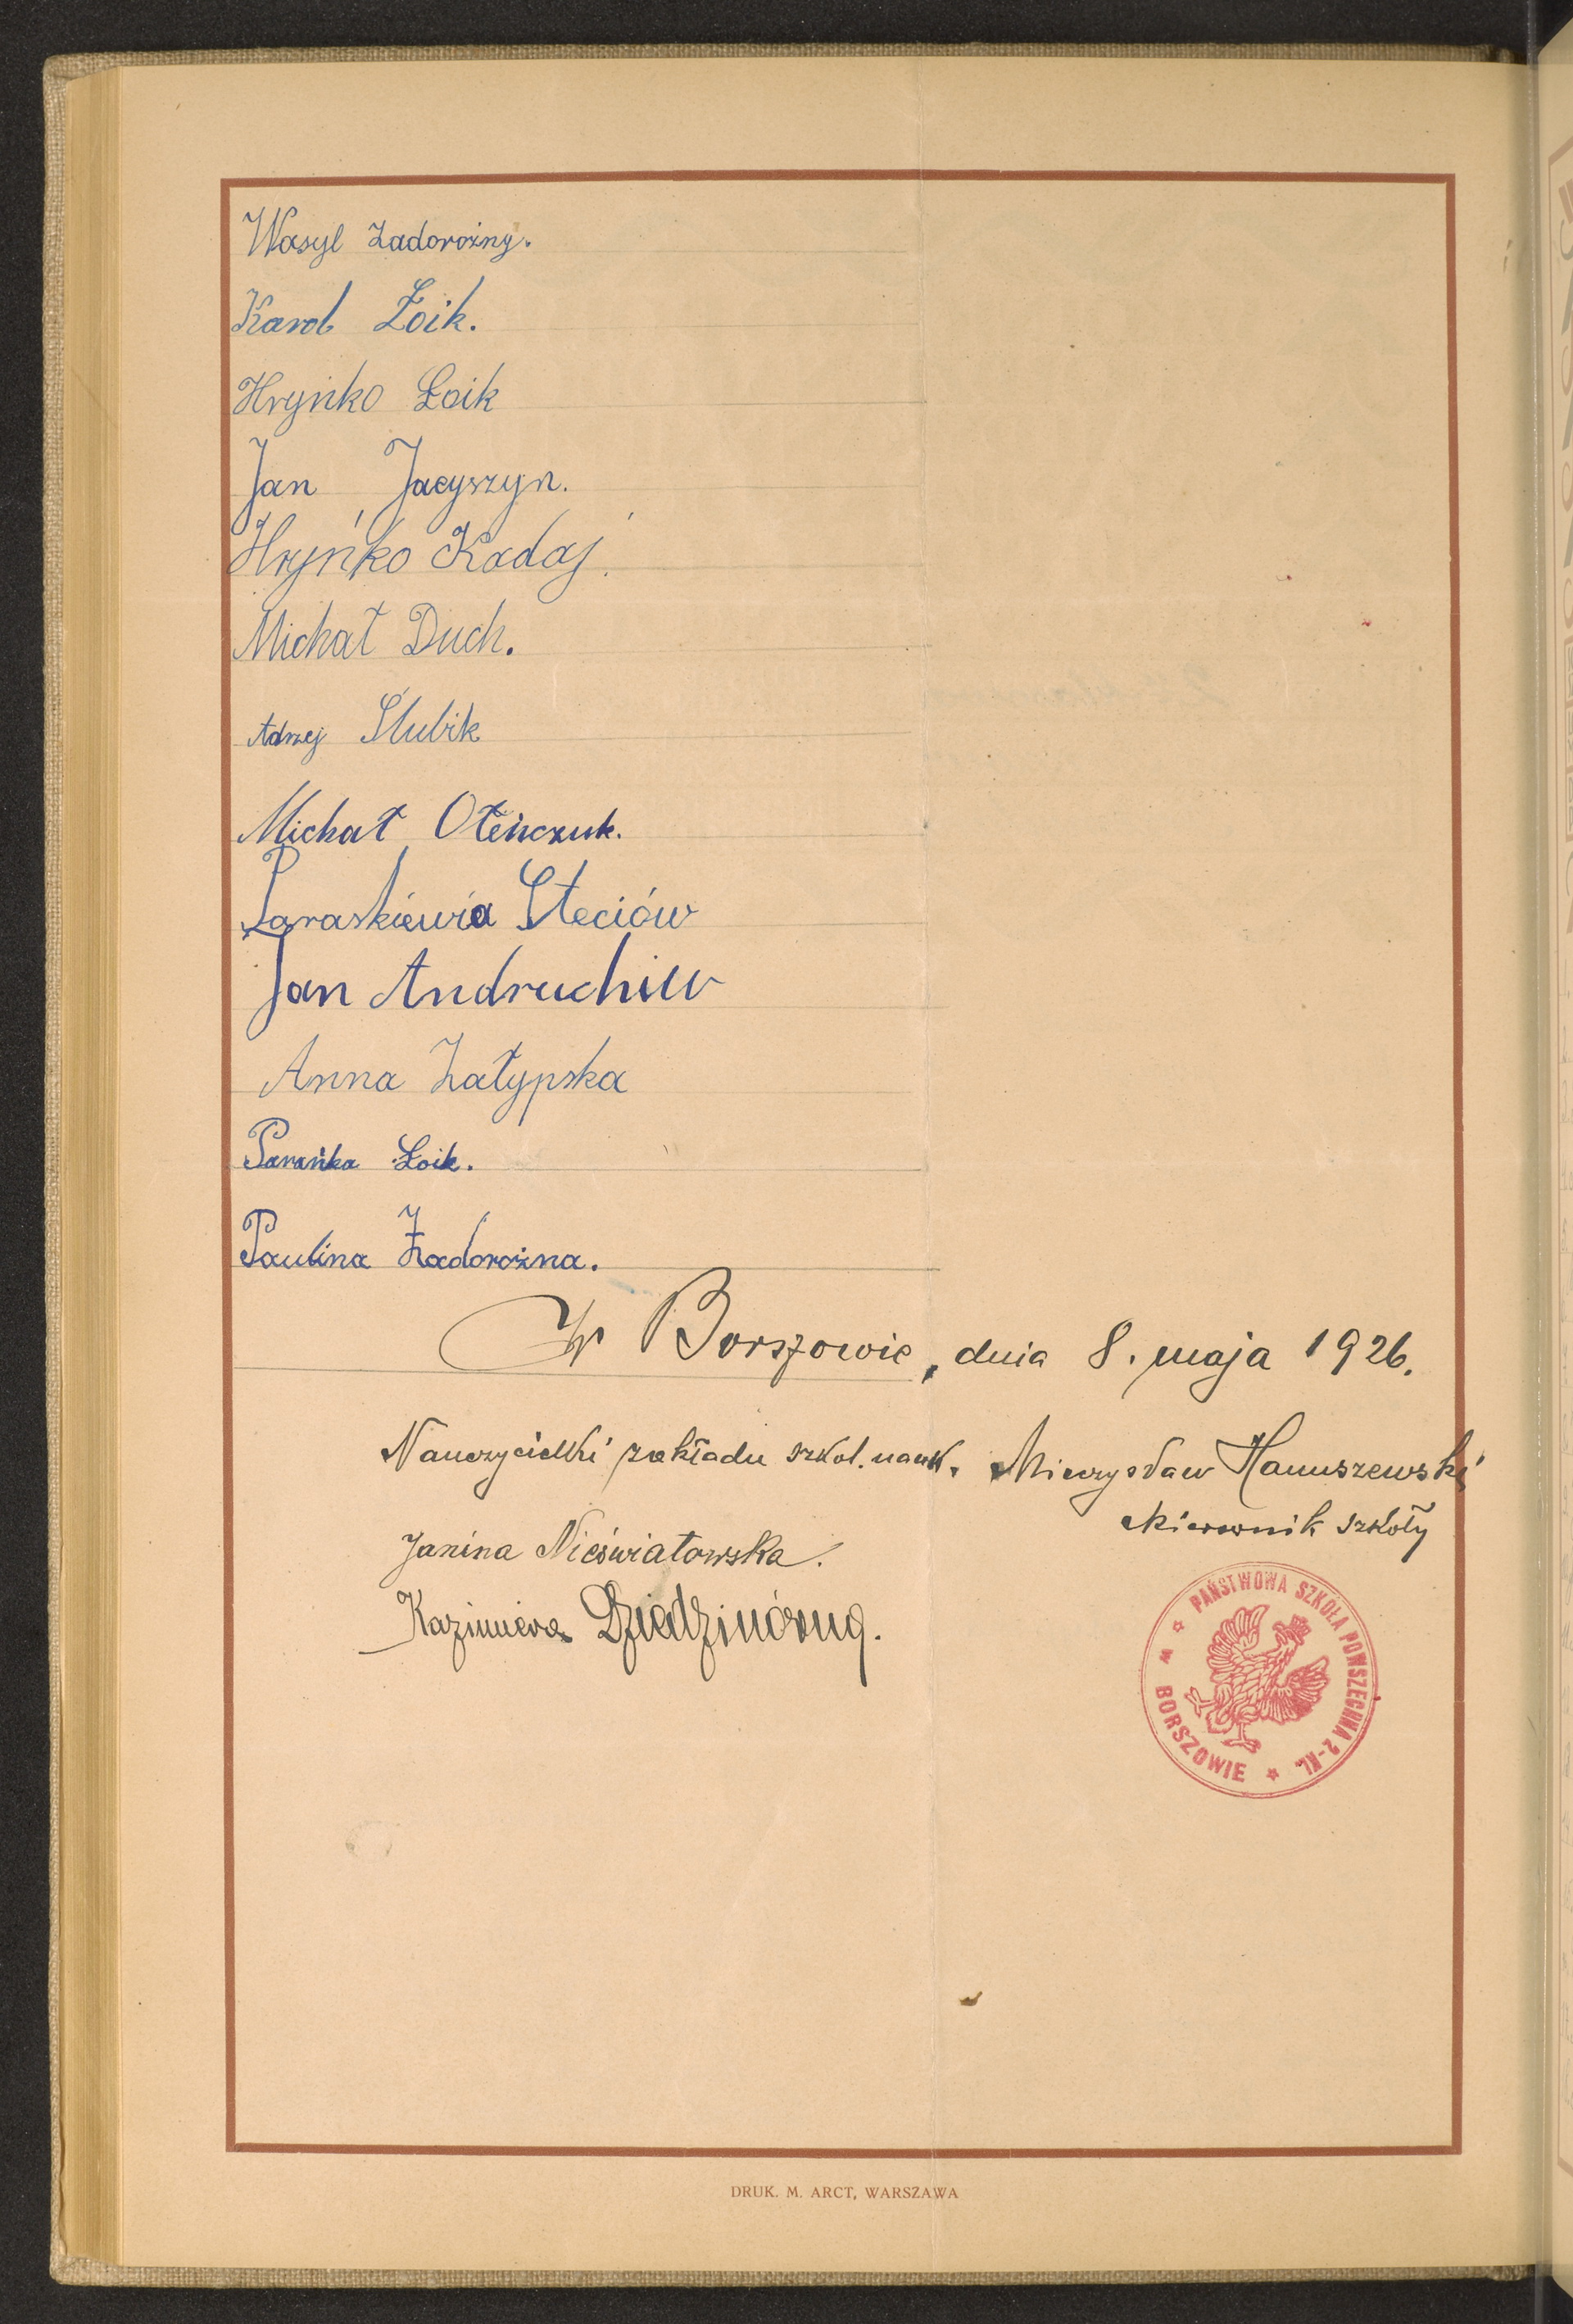 Wasyl Zadorożny.
Karol Łoik.
Hryńko Łoik
Jan Jacyszyn.
Hryńko Kadaj.
Michał Duch.
Adrzej Słubik
Michał Oteńczuk.
Paraskiewia Steciów
Jan Andruchiw
Anna Załypska
Parańka Łoik.
Paulina Zadorożna.
W Borszowie, dnia 8. maja 1926.
Nauczycielki zakładu szkol. nauk. Mieczysław Hanuszewski
kierownik szkoły
Janina Nieświatowska.
Kazimiera
PAŃSTWOWA SZKOŁA POWSZECHNA 2-KL.
W BORSZOWIE
DRUK. M. ARCT, WARSZAWA